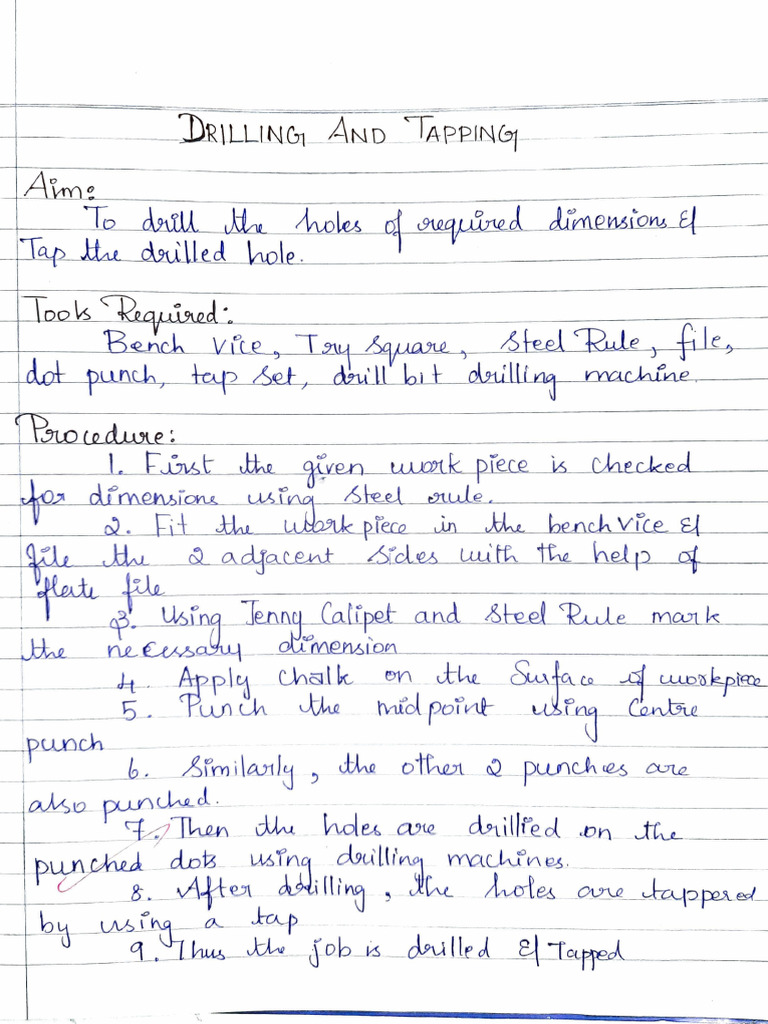 DRILLING AND TAPPING
Aim:
To drill the holes of required dimensions &
Tap the drilled hole.
Tools Required:
Bench Vice, Try square, Steel Rule, file,
dot punch, tap set, drill bit drilling machine.
Procedure:
1. First the given work piece is checked
for dimensions using steel rule.
2. Fit the work piece in the bench vice &
file the 2 adjacent sides with the help of
flate file
3. Using Jenny Calipet and Steel Rule mark
the necessary dimension
4. Apply chalk on the Surface of workpiece
5. Punch the midpoint using Centre
punch
6. Similarly, the other 2 punches are
also punched.
7. Then the holes are drillied on the
punched dots using drilling machines.
8. After drilling, the holes are tappered
by using a tap
9. Thus the job is drilled & Tapped